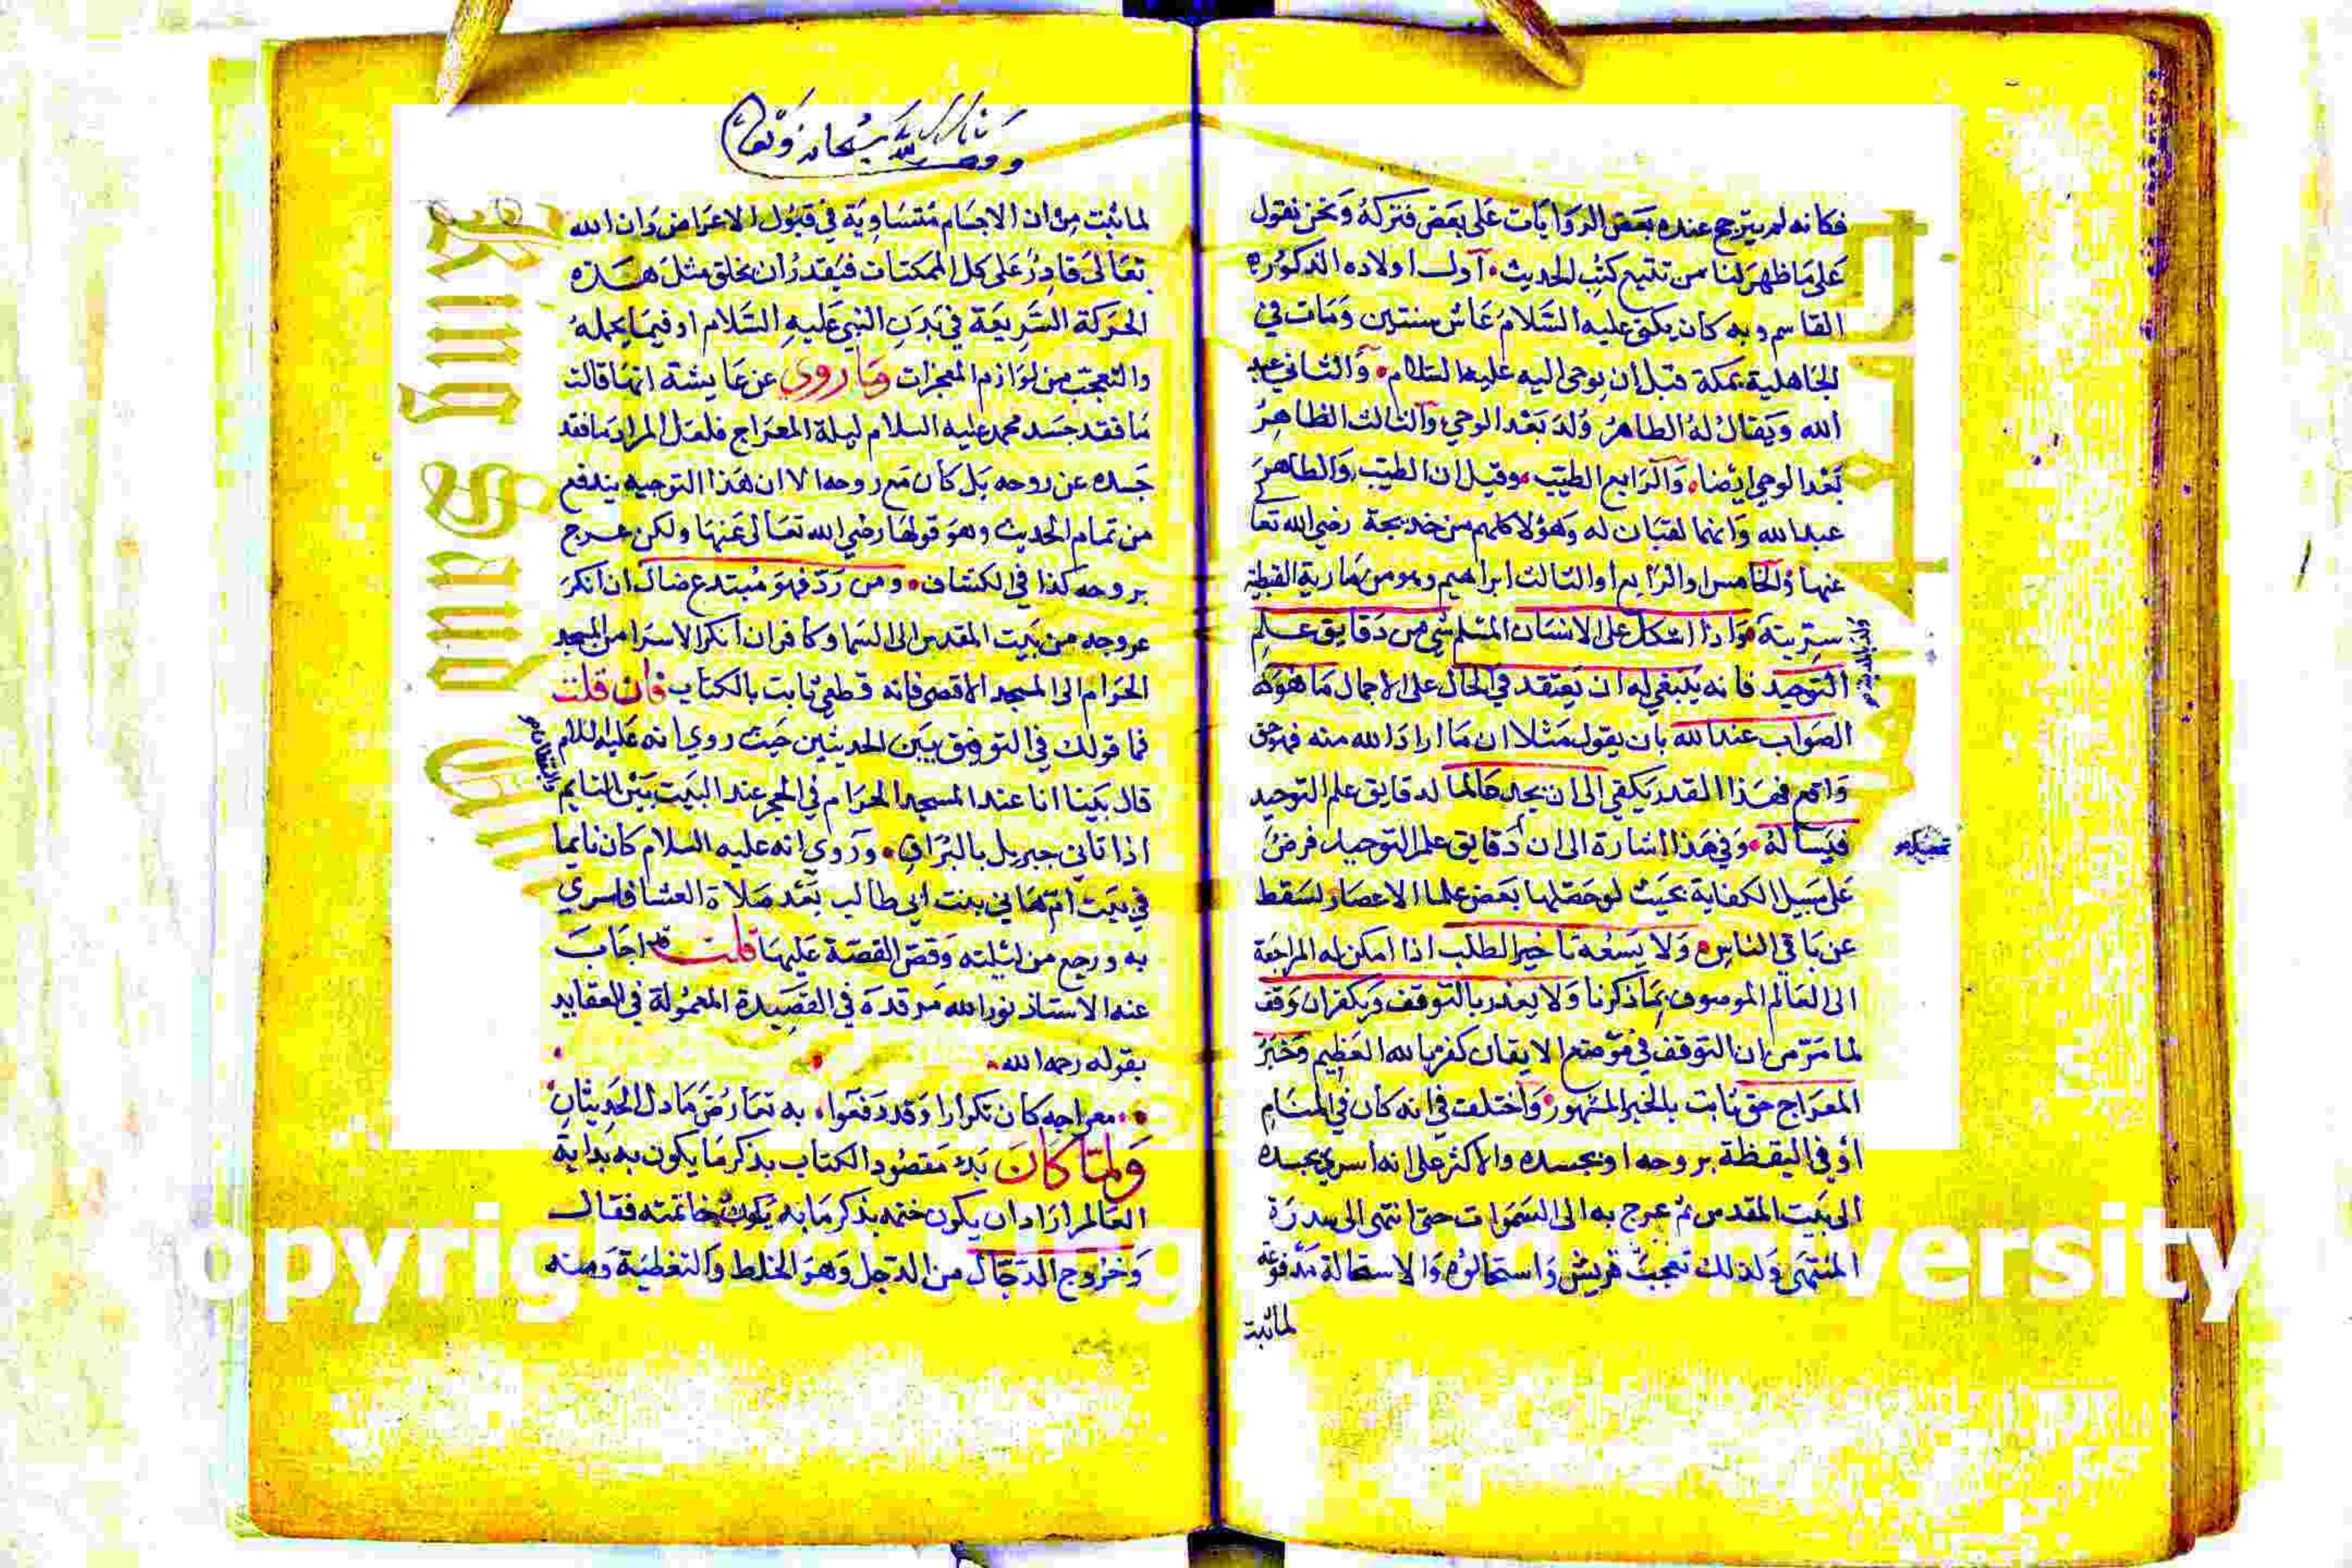 فكانه لم يترجح عنده بعض الروايات على بعض فتركه ونحن نقول
على ما ظهر لنا من تتبع كتب الحديث اول اولاده المذكورة
القاسم وبه كان يكنى عليه السلام عاش سنتين ومات في
الجاهلية بمكة قبل ان يوحى اليه عليه السلام والثاني عبد
الله ويقال له الطاهر ولد بعد الوحي والثالث الظاهر
بعد الوحي ايضا والرابع الطيب وقيل ان الطيب والطاهر
عبد الله وانهما لقبان له وهؤلا كلهم من خديجة رضي الله تعا
عنها والخامس او الرابع او الثالث ابراهيم وهو من مارية القبطية
سريته واذا اشكل على الانسان المسلم شي من دقايق علم
التوحيد فانه ينبغي له ان يعتقد في الحال على الاجمال ما هو
الصواب عند الله بان يقول مثلا ان ما اراد الله منه فهو حق
واقع فهذا القدر يكفي الى ان يجد عالما لدقايق علم التوحيد
فيساله وفي هذا اشارة الى ان دقايق علم التوحيد فرض
على سبيل الكفاية بحيث لو حصلها بعض علما الاعصار لسقط
عن باقي الناس ولا يسعه تاخير الطلب اذا امكن له المراجعة
الى العالم الموصوف بما ذكرنا ولا يعذر بالتوقف ويكفر ان وقف
لما مر من ان التوقف في موضع الايقان كفر بالله العظيم وخبر
المعراج حق ثابت بالخبر المشهور واختلف في انه كان في المنام
او في اليقظة بروحه او بجسده والاكثر على انه اسري بجسده
الى بيت المقدس ثم عرج به الى السموات حتى انتهى الى سدرة
المنتهى ولذلك تعجب قريش واستحالوه والاستحالة مدفوعة
لما ثبت
لما ثبت من ان الاجسام متساوية في قبول الاعراض وان الله
تعالى قادر على كل الممكنات فيقدر ان يخلق مثل هذه
الحركة السريعة في بدن النبي عليه السلام او فيما يحمله
والتعجب من لوازم المعجزات وما روي عن عايشة انها قالت
ما فقد جسد محمد عليه السلام ليلة المعراج فلعل المراد ما فقد
جسده عن روحه بل كان مع روحه الا ان هذا التوجيه يندفع
من تمام الحديث وهو قولها رضي الله تعالى عنها ولكن عرج
بروحه كذا في الكشاف ومن رد فهو مبتدع ضال ان انكر
عروجه من بيت المقدس الى السما وكافر ان انكر الاسرا من المسجد
الحرام الى المسجد الاقصى فانه قطعي ثابت بالكتاب فان قلت
فما قولك في التوفيق بين الحديثين حيث روي انه عليه السلام
قال بينا انا عند المسجد الحرام في الحجر عند البيت بين النايم
اذ اتاني جبريل بالبراق وروي انه عليه السلام كان نايما
في بيت ام هاني بنت ابي طالب بعد صلاة العشا فاسري
به ورجع من ليلته وقص القصة عليها قلت قد اجاب
عنه الاستاذ نور الله مرقده في القصيدة المعمولة في العقايد
بقوله رحمه الله
معراجه كان تكرارا وقد دفعوا به تعارض ما دل الحديثان
ولما كان بدء مقصود الكتاب بذكر ما يكون به بداية
العالم اراد ان يكون ختمه بذكر ما به يكون خاتمته فقال
وخروج الدجال من الدجل وهو الخلط والتغطية ومنه
Copyright © King Saud University